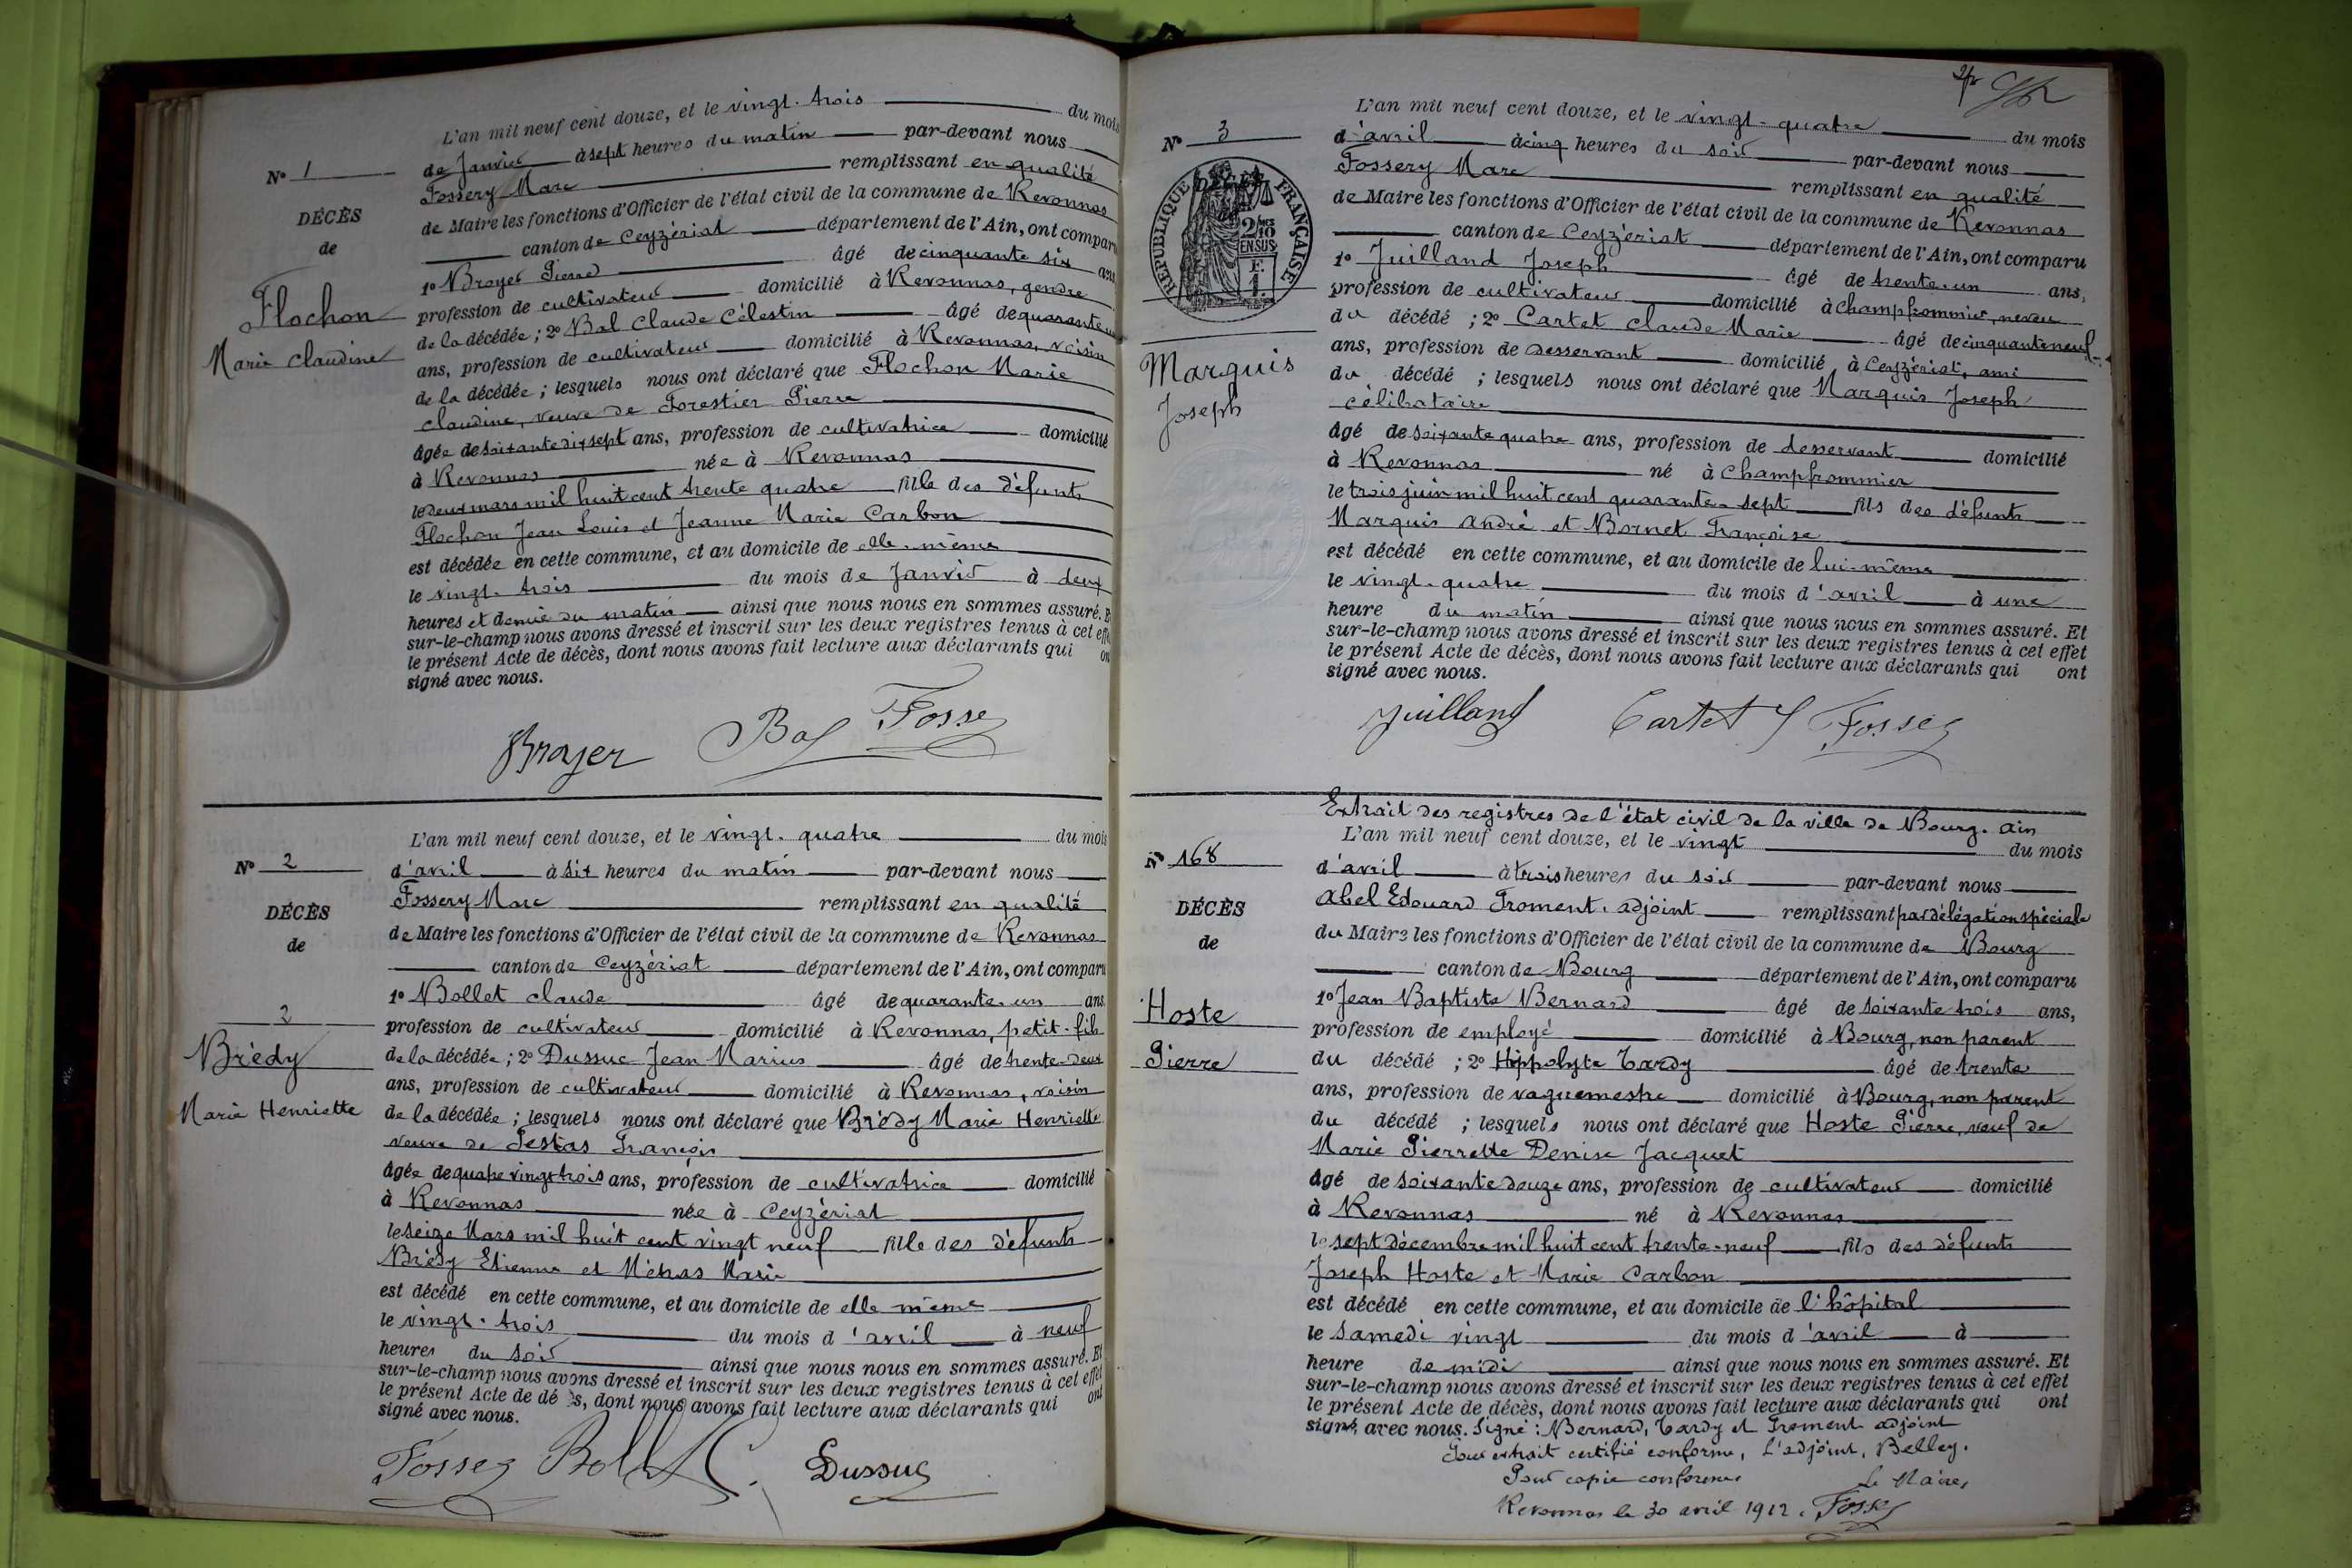 N° 1
DÉCÈS
de
Flochon
Marie Claudine
L'an mil neuf cent douze, et le vingt-trois du mois
de Janvier à sept heures du matin par-devant nous
Fossery Marc remplissant en qualité
de Maire les fonctions d'Officier de l'état civil de la commune de Revonnas
canton de Ceyzériat département de l'Ain, ont comparu
1° Broyer Pierre âgé de cinquante six ans
profession de cultivateur domicilié à Revonnas, gendre
de la décédée ; 2° Bal Claude Célestin âgé de quarante
ans, profession de cultivateur domicilié à Revonnas, voisin
de la décédée ; lesquels nous ont déclaré que Flochon Marie
Claudine, veuve de Forestier Pierre
âgée de soixante dix sept ans, profession de cultivatrice domicilié
à Revonnas née à Revonnas
le deux mars mil huit cent trente quatre fille des défunts
Flochon Jean Louis et Jeanne Marie Carbon
est décédée en cette commune, et au domicile de elle-même
le vingt-trois du mois de Janvier à deux
heures et demie du matin ainsi que nous nous en sommes assuré. E
sur-le-champ nous avons dressé et inscrit sur les deux registres tenus à cet effe
le présent Acte de décès, dont nous avons fait lecture aux déclarants qui on
signé avec nous.
Broyer Bal Fossey
N° 2
DÉCÈS
de
2
Brédy
Marie Henriette
L'an mil neuf cent douze, et le vingt-quatre du mois
d'avril à six heures du matin par-devant nous
Fossery Marc remplissant en qualité
de Maire les fonctions d'Officier de l'état civil de la commune de Revonnas
canton de Ceyzériat département de l'Ain, ont comparu
1° Bollet Claude âgé de quarante-un ans
profession de cultivateur domicilié à Revonnas, petit-fils
de la décédée ; 2° Dussuc Jean Marius âgé de trente-deux
ans, profession de cultivateur domicilié à Revonnas, voisin
de la décédée ; lesquels nous ont déclaré que Brédy Marie Henriette
veuve de Pestas François
âgée de quatre vingt trois ans, profession de cultivatrice domicilié
à Revonnas née à Ceyzériat
le seize Mars mil huit cent vingt neuf fille des défunts
Brédy Etienne et Métras Marie
est décédé en cette commune, et au domicile de elle même
le vingt-trois du mois d'avril à neuf
heures du soir ainsi que nous nous en sommes assuré. Et
sur-le-champ nous avons dressé et inscrit sur les deux registres tenus à cet effet
le présent Acte de dé s, dont nous avons fait lecture aux déclarants qui ont
signé avec nous.
Fossey Bollet C. Dussuc
N° 3
RÉPUBLIQUE FRANÇAISE
DÉCÈS
2/10 EN SUS
F. 1
Marquis
Joseph
L'an mil neuf cent douze, et le vingt-quatre du mois
d'avril à cinq heures du soir par-devant nous
Fossery Marc remplissant en qualité
de Maire les fonctions d'Officier de l'état civil de la commune de Revonnas
canton de Ceyzériat département de l'Ain, ont comparu
1° Juilland Joseph âgé de trente-un ans,
profession de cultivateur domicilié à Champfrommier, neveu
du décédé ; 2° Cartet Claude Marie âgé de cinquante neuf
ans, profession de desservant domicilié à Ceyzériat, ami
du décédé ; lesquels nous ont déclaré que Marquis Joseph
célibataire
âgé de soixante quatre ans, profession de desservant domicilié
à Revonnas né à Champfrommier
le trois juin mil huit cent quarante-sept fils des défunts
Marquis André et Bornet Françoise
est décédé en cette commune, et au domicile de lui-même
le vingt-quatre du mois d'avril à une
heure du matin ainsi que nous nous en sommes assuré. Et
sur-le-champ nous avons dressé et inscrit sur les deux registres tenus à cet effet
le présent Acte de décès, dont nous avons fait lecture aux déclarants qui ont
signé avec nous.
Juilland Cartet Fossey
N° 168
DÉCÈS
de
Hoste
Pierre
Extrait des registres de l'état civil de la ville de Bourg. Ain
L'an mil neuf cent douze, et le vingt du mois
d'avril à trois heures du soir par-devant nous
Abel Edouard Froment, adjoint remplissant par délégation spéciale
du Maire les fonctions d'Officier de l'état civil de la commune de Bourg
canton de Bourg département de l'Ain, ont comparu
1° Jean Baptiste Bernard âgé de soixante trois ans,
profession de employé domicilié à Bourg, non parent
du décédé ; 2° Hippolyte Tardy âgé de trente
ans, profession de vaguemestre domicilié à Bourg, non parent
du décédé ; lesquels nous ont déclaré que Hoste Pierre, veuf de
Marie Pierrette Denise Jacquet
âgé de soixante douze ans, profession de cultivateur domicilié
à Revonnas né à Revonnas
le sept décembre mil huit cent trente-neuf fils des défunts
Joseph Hoste et Marie Carbon
est décédé en cette commune, et au domicile de l'hôpital
le samedi vingt du mois d'avril à
heure de midi ainsi que nous nous en sommes assuré. Et
sur-le-champ nous avons dressé et inscrit sur les deux registres tenus à cet effet
le présent Acte de décès, dont nous avons fait lecture aux déclarants qui ont
signé avec nous. Signé : Bernard, Tardy et Froment adjoint
Pour extrait certifié conforme, L'adjoint, Belley.
Pour copie conforme
Le Maire,
Revonnas le 30 avril 1912. Fossey